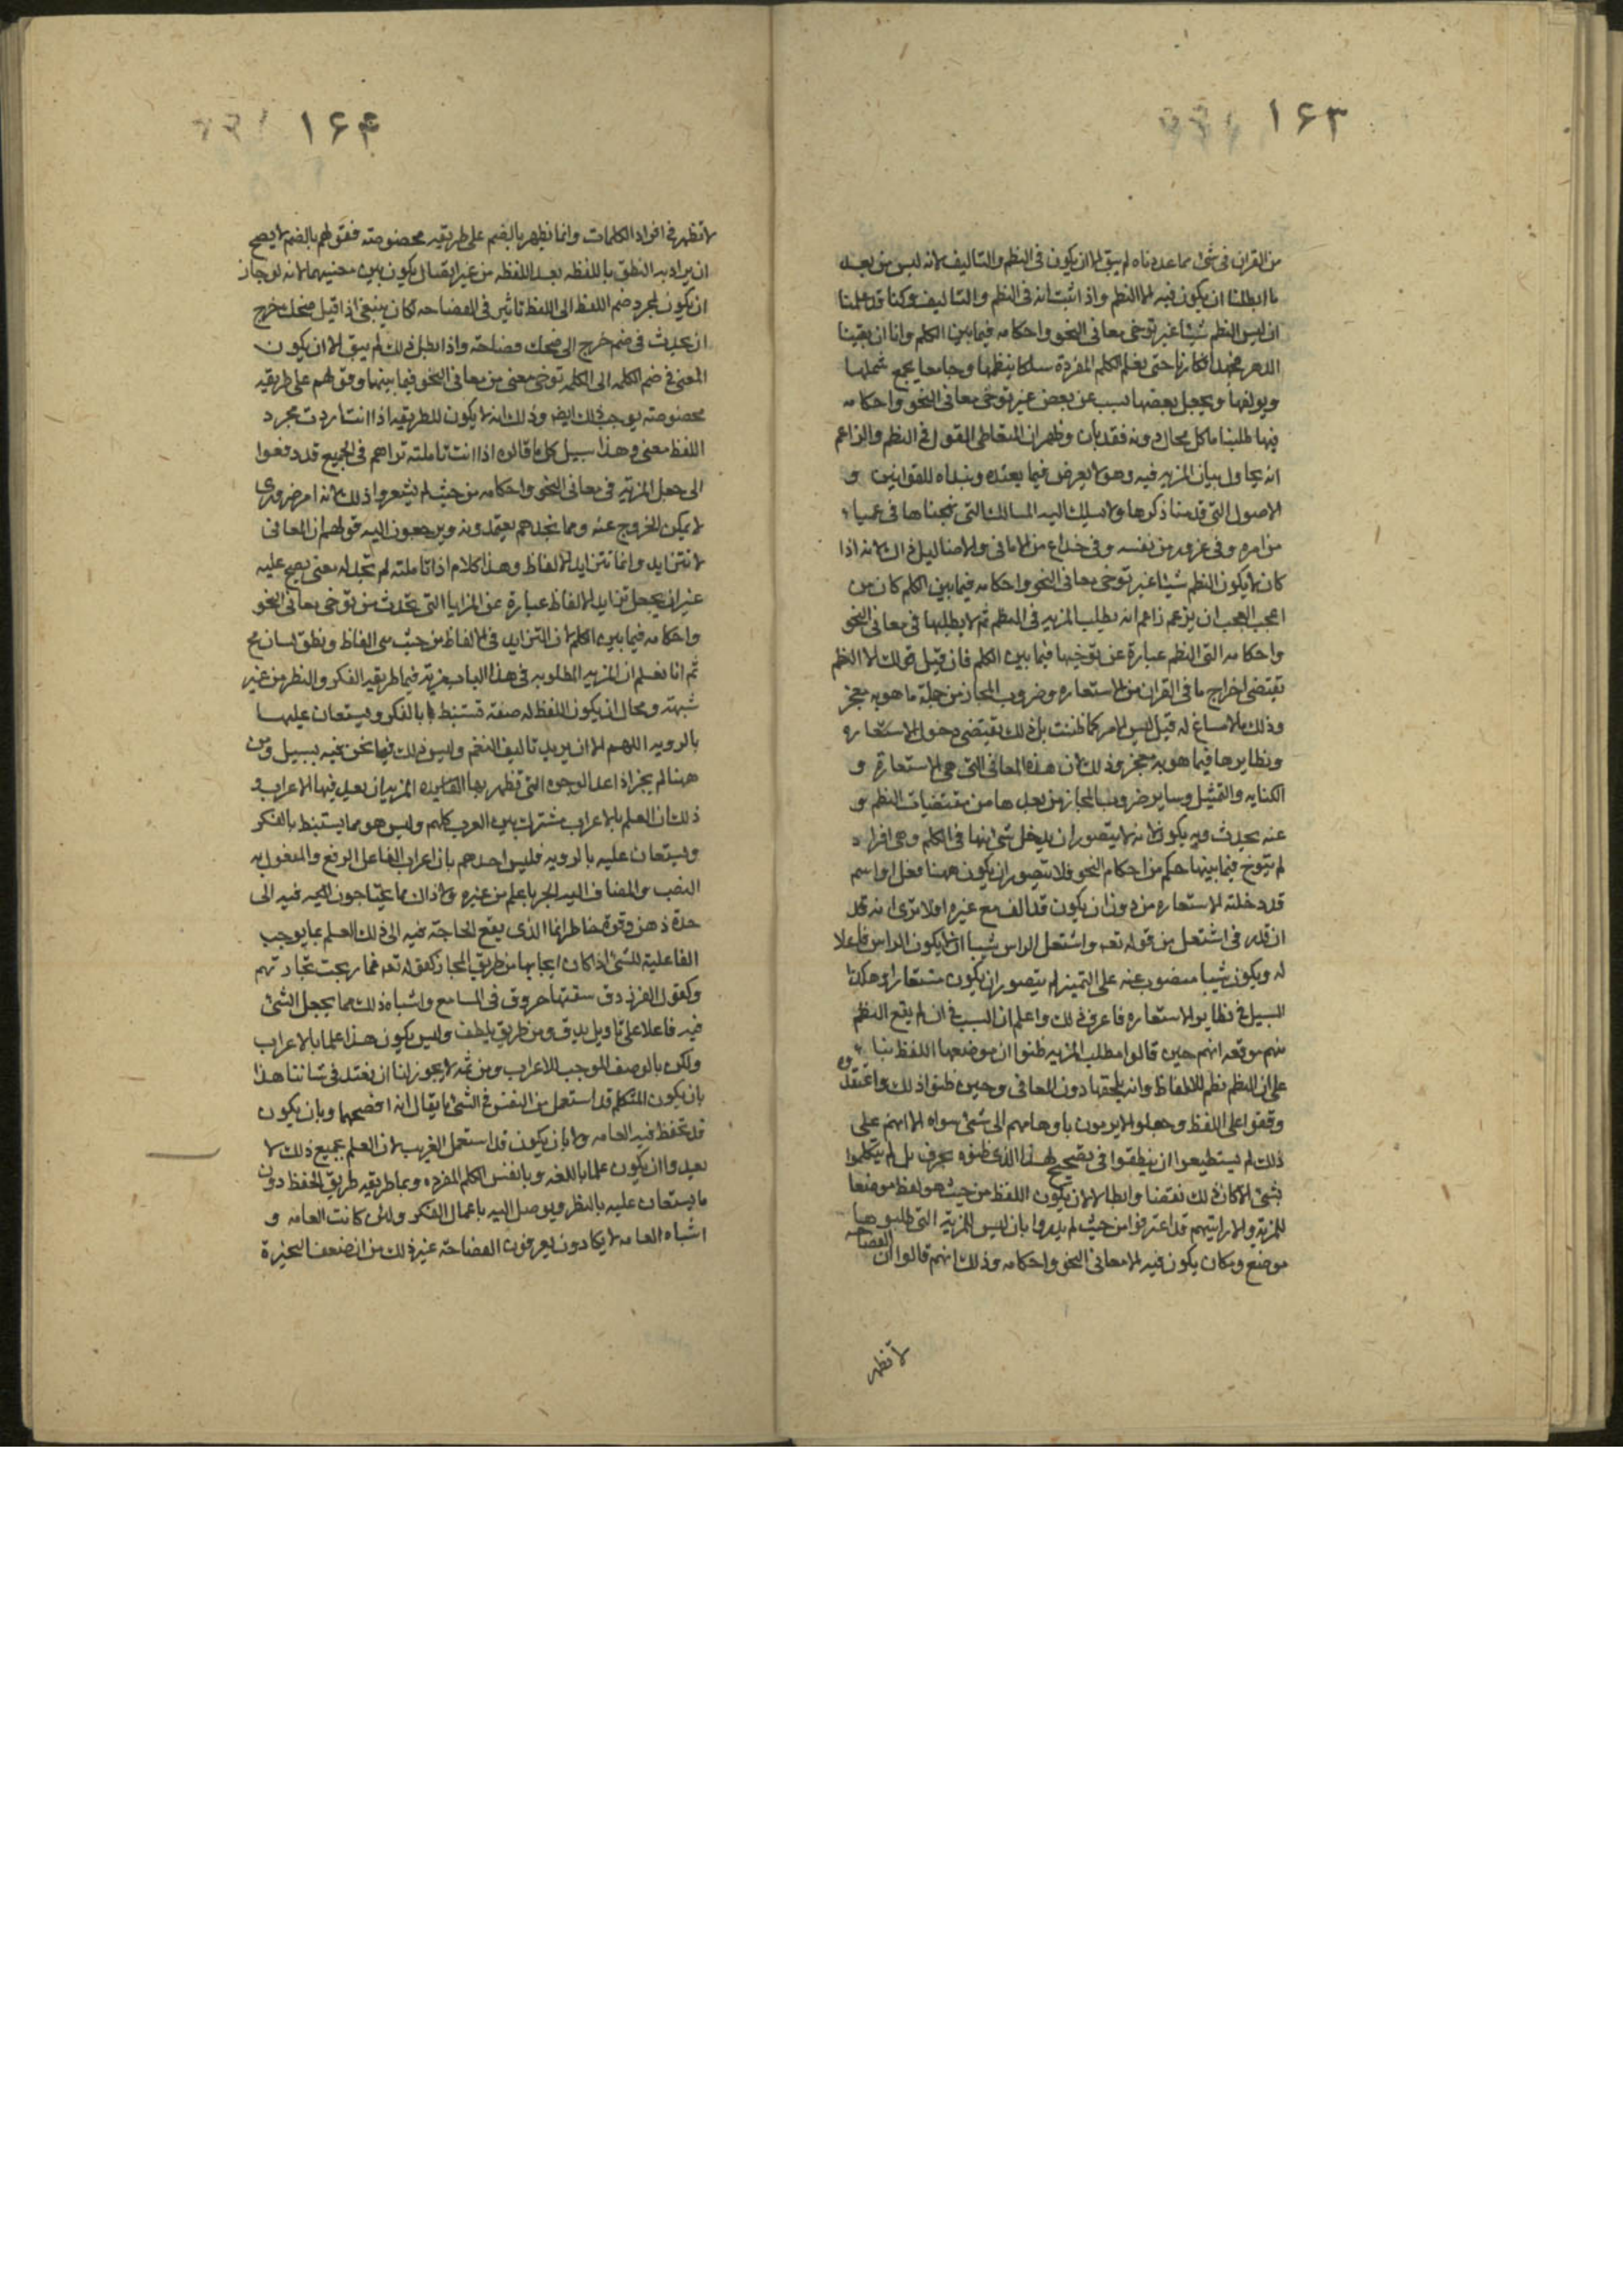 ١۶٣
من القران فى شئ مما عددناه لم يبق الا ان يكون فى النظم والتاليف لانه ليس من بعد
ما ابطلنا ان يكون فيه الا النظم واذا ثبت انه فى النظم والتاليف وكنا قد علمنا
ان ليس النظم شيئا غير توخى معانى النحو واحكامه فيما بين الكلم وانا ان بقينا
الدهر نجهد افكارنا حتى نعلم الكلم المفردة سلكا ينظمها وجامعا يجمع شملها
ويولفها ويجعل بعضها بسبب من بعض غير توخى معانى النحو واحكامه
فيها طلبنا ما كل محال دونه فقد بان وظهر ان المتعاطى القول فى النظم والزاعم
انه يحاول بيان المزيه فيه وهو لا يعرض فيما يعيده ويبداه للقوانين و
الاصول التى قدمنا ذكرها ولا يسلك اليه المسالك التى نهجناها فى عمياء
من امره وفى غرور من نفسه وفى خداع من الامانى والاضاليل ذاك لانه اذا
كان لا يكون النظم شيئا غير توخى معانى النحو واحكامه فيما بين الكلم كان من
اعجب العجب ان يزعم زاعم انه يطلب المزيه فى النظم ثم لا يطلبها فى معانى النحو
واحكامه التى النظم عبارة عن توخيها فيما بين الكلم فان قيل قولك الا النظم
يقتضى اخراج ما فى القران من الاستعاره وضروب المجاز من جملة ما هو به معجز
وذلك ما لا مساغ له قيل ليس الامر كما ظننت بل ذلك يقتضى دخول الاستعاره
ونظايرها فيما هو به معجز وذلك لان هذه المعانى التى هى الاستعارة و
الكنايه والتمثيل وساير ضروب المجاز من بعدها من مقتضيات النظم و
عنه يحدث وبه يكون لانه لا يتصور ان يدخل شئ منها فى الكلم وهى افراد
لم يتوخ فيما بينها حكم من احكام النحو فلا يتصور ان يكون ههنا فعل او اسم
قد دخلته الاستعاره من دون ان يكون قد الف مع غيره اولا ترى انه قد
ان قدر فى اشتعل من قوله تعه واشتعل الراس شيبا ان لا يكون الراس فاعلا
له ويكون شيبا منصوب عنه على التميز لم يتصور ان يكون مستعارا وهكذا
السبيل فى نظاير الاستعاره فاعرف ذلك واعلم ان السبب فى ان لم يقع النظم
منهم موقعه انهم حين قالوا مطلب المزيه ظنوا ان موضعها اللفظ بناء
على ان النظم نظم الالفاظ وانه يلحقها دون المعانى وحين ظنوا ذلك واعتقدوه
وقفوا على اللفظ وجعلوا لا يرمون باوهامهم الى شئ سواه الا انهم على
ذلك لم يستطيعوا ان ينطقوا فى تصحيح لهذا الذى ظنوه بحرف بل لم يتكلموا
بشئ الا كان ذلك نقضا وابطالا لان يكون اللفظ من حيث هو لفظ موضعا
للمزيه والا رايتهم قد اعترفوا من حيث لم يدروا بان ليس للمزيه التى طلبوها
موضع ومكان يكون فيه الا معانى النحو واحكامه وذلك انهم قالوا ان الفصاحه
لا تظهر
١۶۴
لا تظهر فى افراد الكلمات وانما تظهر بالضم على طريقه مخصوصته فقولهم بالضم لا يصح
ان يراد به النطق باللفظه بعد اللفظه من غير ايصال يكون بين معنييهما لانه لو جاز
ان يكون لمجرد ضم اللفظ الى اللفظ تاثير فى الفصاحه لكان ينبغى اذا قيل ضحك خرج
ان يحدث فى ضم خرج الى ضحك فصاحته واذا بطل ذلك لم يبق الا ان يكون
المعنى فى ضم الكلمه الى الكلمه توخى معنى من معانى النحو فيما بينهما وقولهم على طريقه
مخصوصته يوجب ذلك ايضا وذلك انه لا يكون للطريقه اذا انت اردت مجرد
اللفظ معنى وهذا سبيل كل ما قالوه اذا انت تاملته تراهم فى الجميع قد دفعوا
الى جعل المزيه فى معانى النحو واحكامه من حيث لم يشعروا ذلك لانه امر ضرورى
لا يمكن الخروج عنه ومما نجدهم يعتمدونه ويرجعون اليه قولهم ان المعانى
لا تتزايد وانما تتزايد الالفاظ وهذا كلام اذا تاملته لم تجد له معنى يصح عليه
غير ان يجعل تزايد الالفاظ عبارة عن المزايا التى تحدث من توخى معانى النحو
واحكامه فيما بين الكلم لان التزايد فى الالفاظ من حيث هى الفاظ ونطق لسان مح
ثم انا نعلم ان المزيه المطلوبه فى هذا الباب مزية فيما طريقه الفكر والنظر من غير
شبهة ومحال ان يكون اللفظ له صفة تستنبط بالفكر ويستعان عليها
بالرويه اللهم الا ان يريد تاليف النغم وليس ذلك فيما نحن فيه بسبيل ومن
ههنا لم يجز اذا عد الوجوه التى تظهر بها المزيه ان يعد فيها الاعراب و
ذلك ان العلم بالاعراب مشترك بين العرب كلهم وليس هو مما يستنبط بالفكر
ويستعان عليه بالرويه فليس احدهم بان اعراب الفاعل الرفع والمفعول به
النصب والمضاف اليه الجر باعلم من غيره ولا ذاك مما يحتاجون فيه الى
حدة ذهن وقوة خاطر انما الذى يقع الحاجته فيه الى ذلك العلم بما يوجب
الفاعليه للشئ اذا كان ايجابها من طريق المجاز كقوله تعه فما ربحت تجارتهم
وكقول الفرزدق سقتها خروق فى المسامع واشباه ذلك مما يجعل الشئ
فيه فاعلا على تاويل يدق ومن طريق يلطف وليس يكون هذا علما بالاعراب
ولكن بالوصف الموجب للاعراب ومن ثمه لا يجوز لنا ان نعتد فى شاننا هذا
بان يكون المتكلم قد استعمل من اللغتين فى الشئ ما يقال انه افصحهما وبان يكون
قد تحفظ فيه العامه ولا بان يكون قد استعمل الغريب لان العلم بجميع ذلك لا
يعدوا ان يكون علما باللغه وبانفس الكلم المفرده وبما طريقه طريق الحفظ دون
ما يستعان عليه بالنظر ويوصل اليه باعمال الفكر ولئن كانت العامه و
اشباه العامه لا يكادون يعرفون الفصاحته غير ذلك من ان ضعف النحيزة